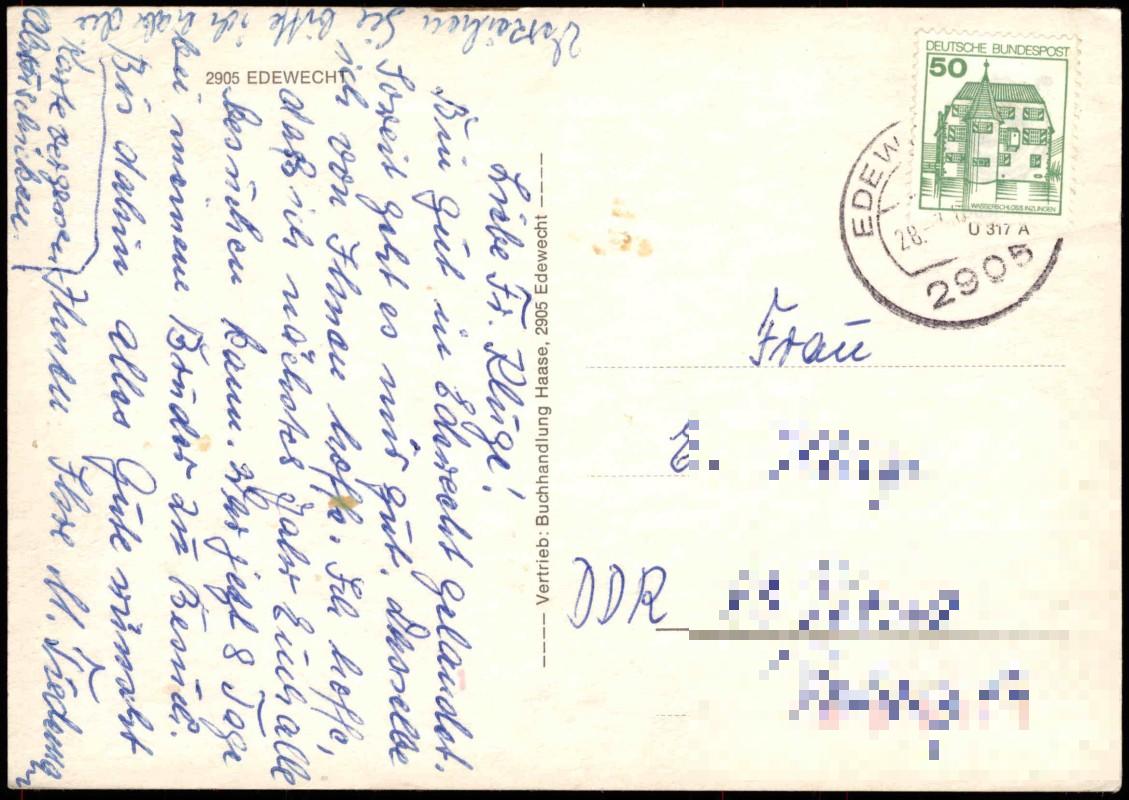 2905 EDEWECHT
Liebe Fr. Kluge!
Bin gut in Edewecht gelandet.
Soweit geht es mir gut. Dasselbe
ich von Ihnen hoffe. Ich hoffe,
daß ich nächstes Jahr Euch alle
besuchen kann. War jetzt 8 Tage
bei meinem Bruder zu Besuch.
Bis dahin alles Gute wünscht
Ihnen Ihre M.
Verzeihen Sie bitte ich habe die
Karte vergessen
abzuschicken.
Vertrieb: Buchhandlung Haase, 2905 Edewecht
DEUTSCHE BUNDESPOST
50
WASSERSCHLOSS INZLINGEN
U 317 A
EDEW
28.
2905
Frau
E.
DDR